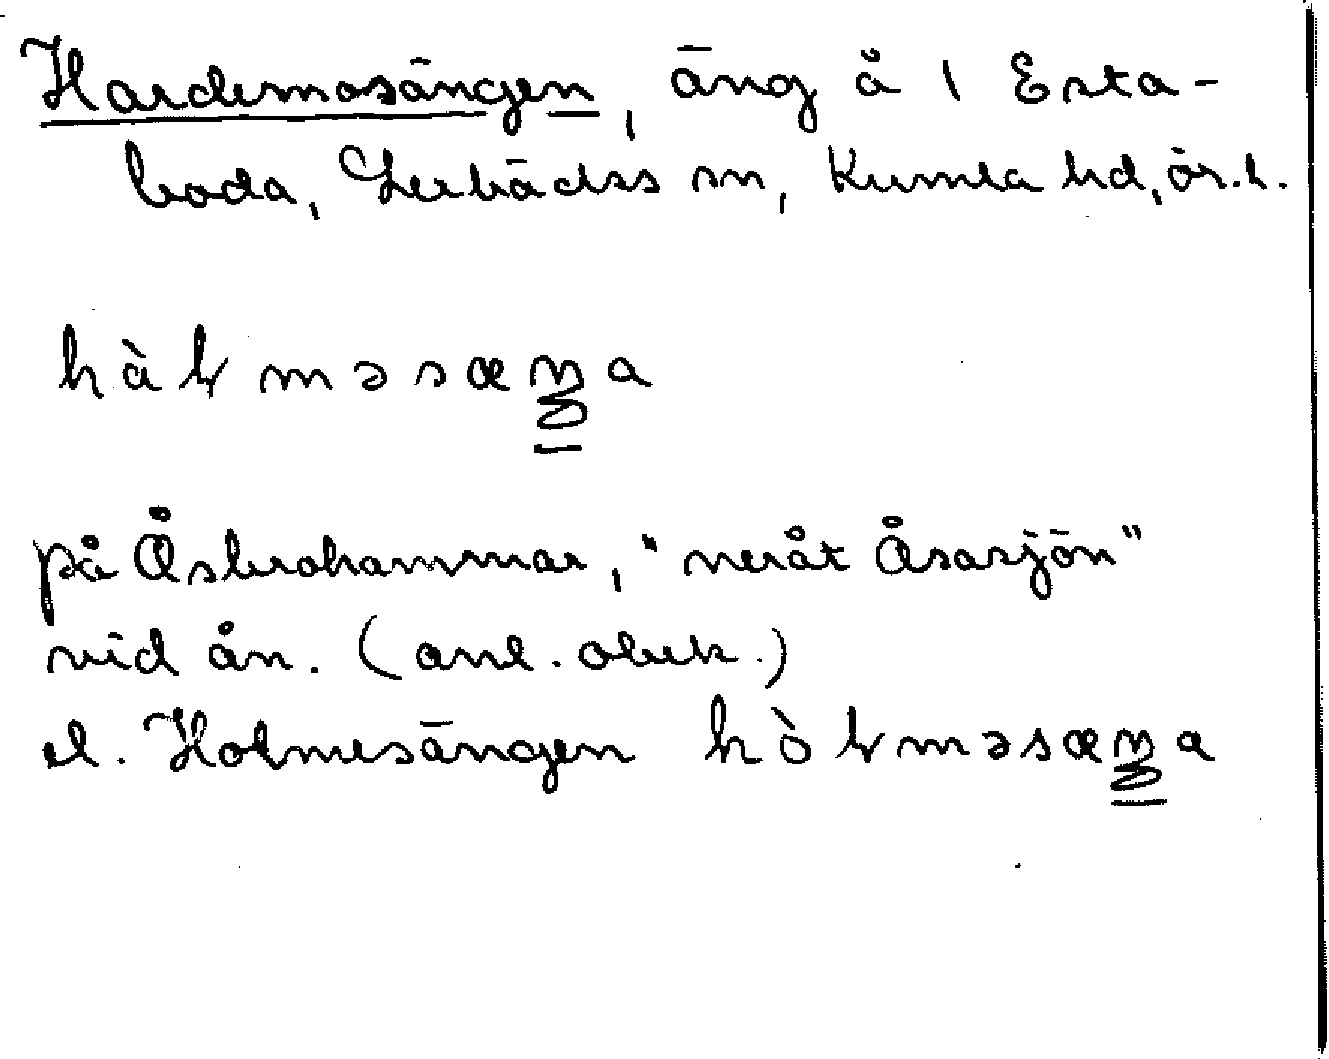 Hardemosängen, äng å 1 Esta-
boda, Lerbäcks sn, Kumla hd, ör. l.
hàɫməsæŋa
på Åsbrohammar, "neråt Åsasjön"
vid ån. (anl. obek.)
el. Holmesängen hòɫməsæŋa